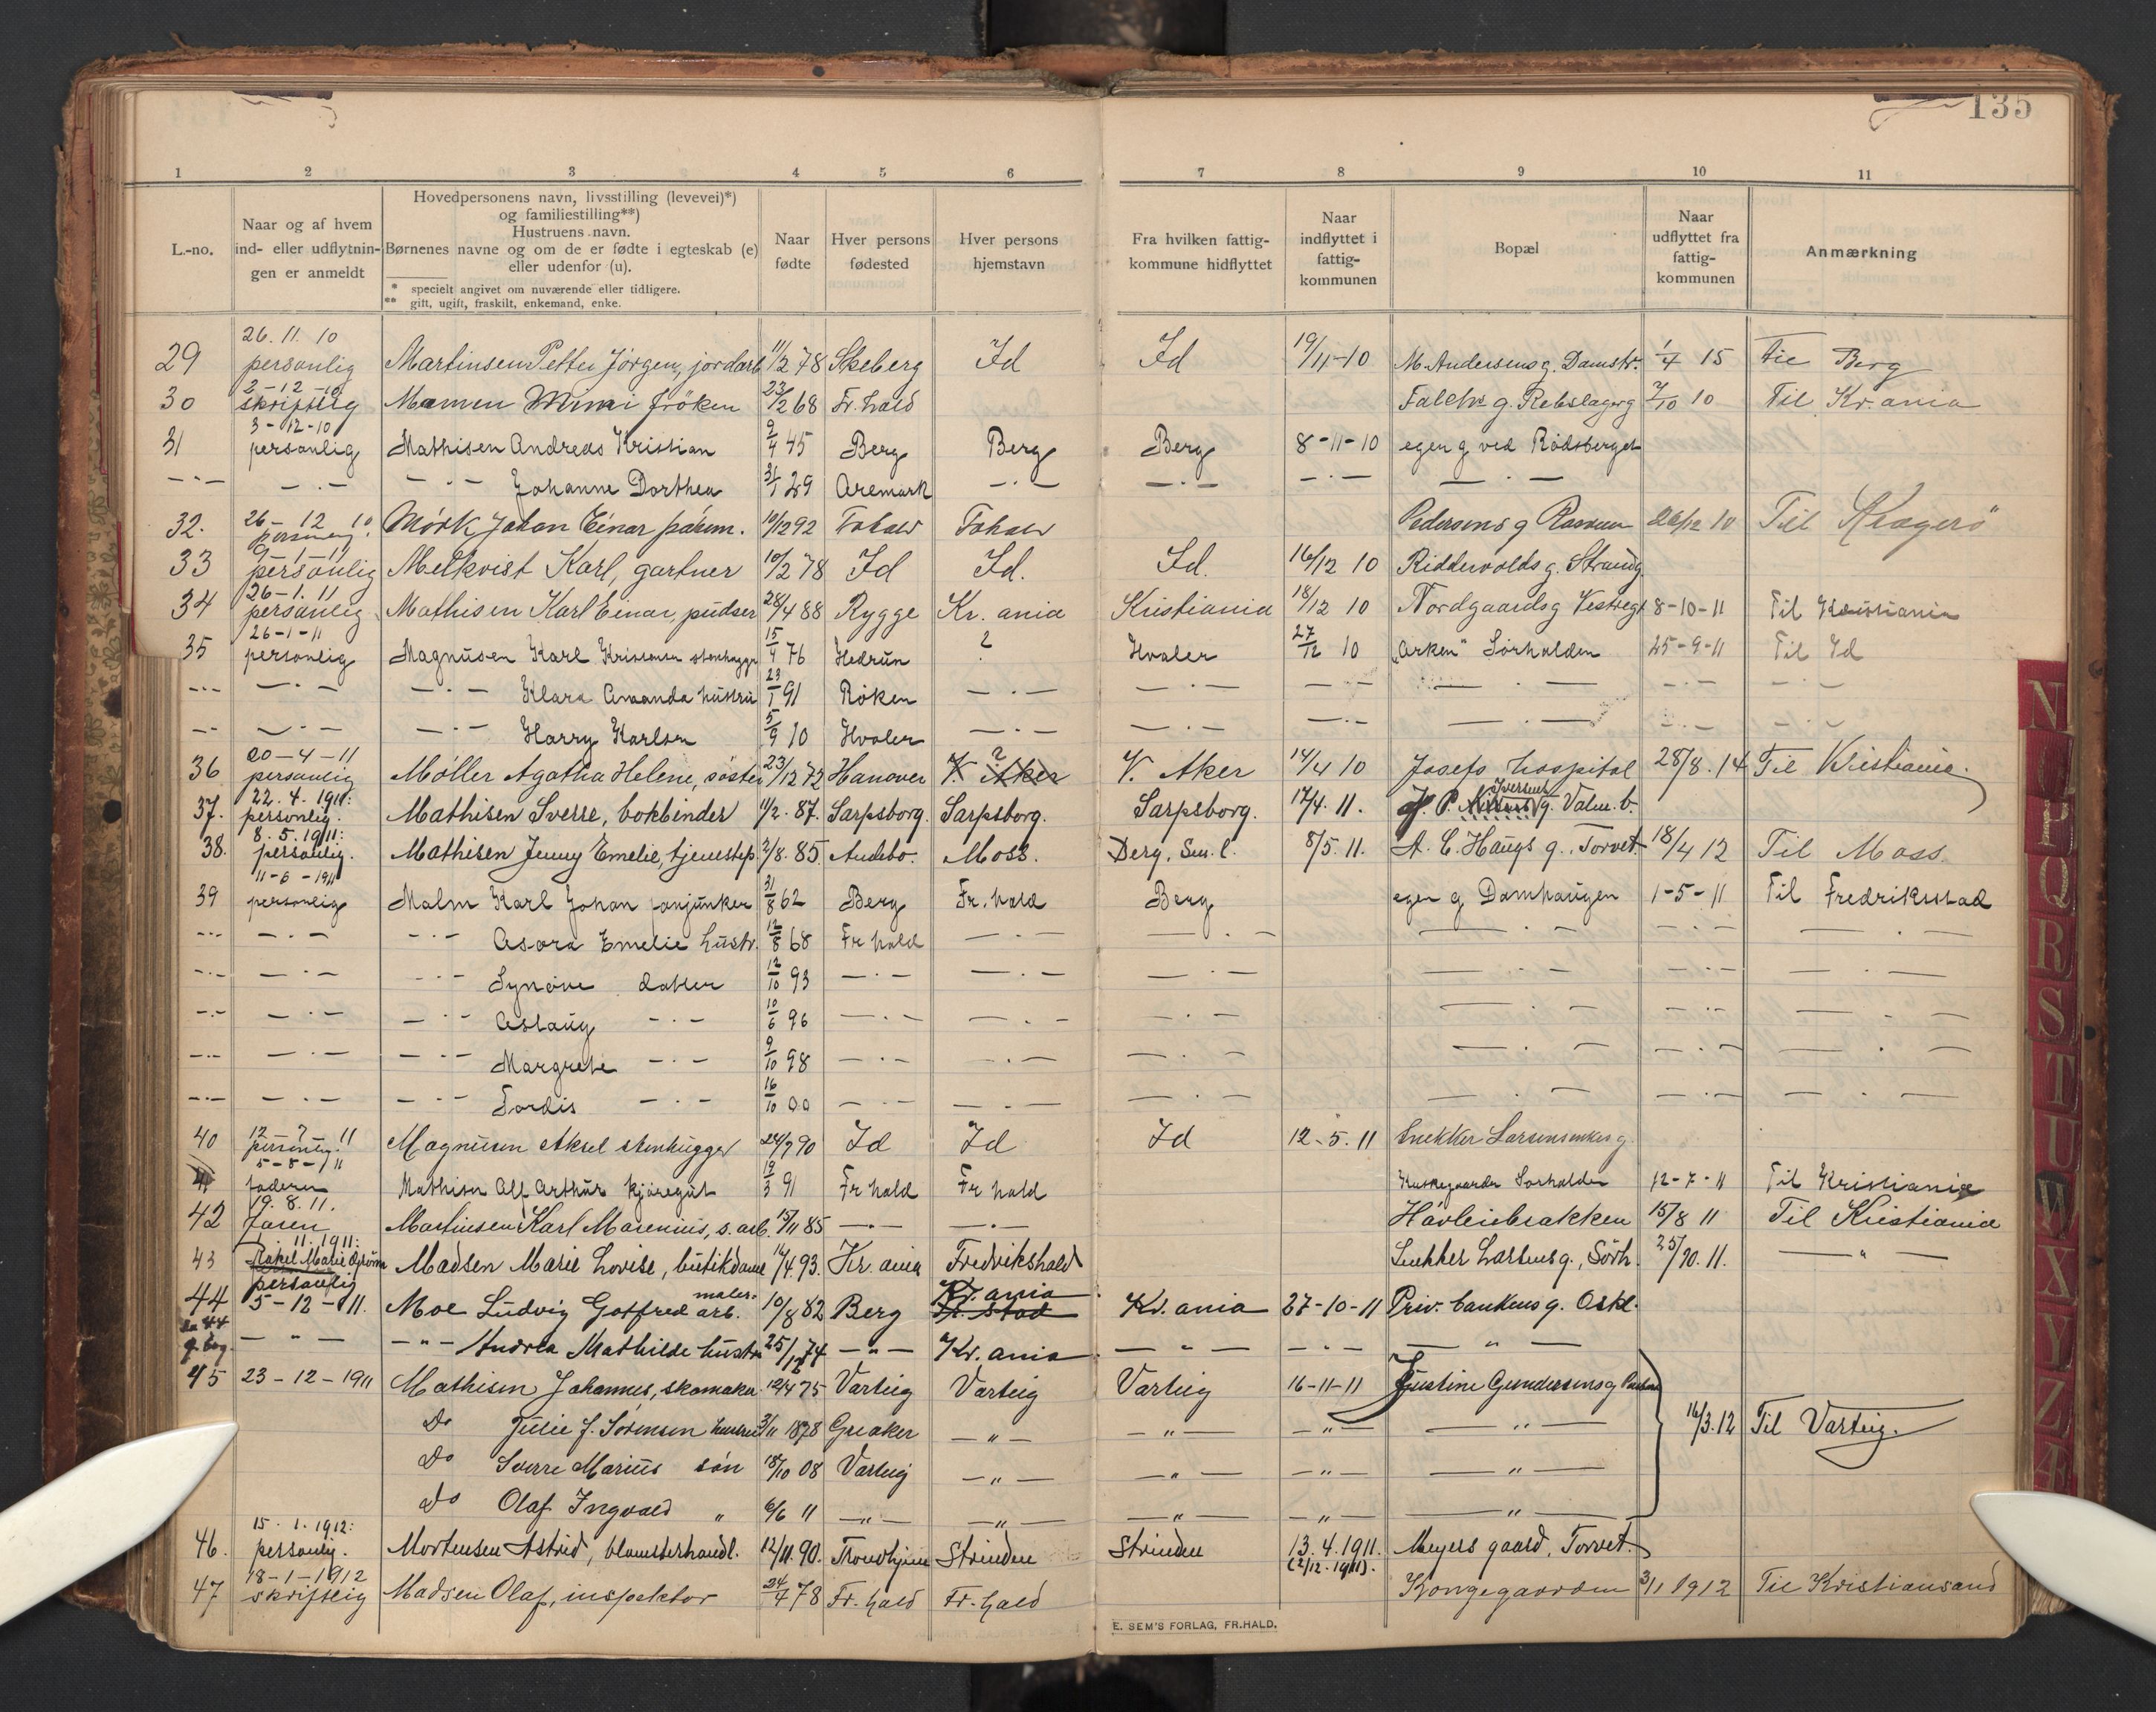 135
1 2 3 4 5 6 7 8 9 10 11
L.-no.
Naar og af hvem
ind- eller udflytnin-
gen er anmeldt
Hovedpersonens navn, livsstilling (levevei)*)
og familiestilling**)
Hustruens navn.
Børnenes navne og om de er fødte i egteskab (e)
eller udenfor (u).
* specielt angivet om nuværende eller tidligere.
** gift, ugift, fraskilt, enkemand, enke.
Naar
fødte
Hver persons
fødested
Hver persons
hjemstavn
Fra hvilken fattig-
kommune hidflyttet
Naar
indflyttet i
fattig-
kommunen
Bopæl
Naar
udflyttet fra
fattig-
kommunen
Anmærkning
26.11.10
29 personlig Martinsen Petter Jörgen, jordarb 11/2 78 Skeberg Id Id 19/11-10 M. Andersens g. Damstr. 1/4 15 til Berg
2-12-10
30 skriftlig Mamen Mimi fröken 23/2 68 Fr. hald Falchs g. Rebslagerg 7/10 10 Til Kr.ania
3-12-10
31 personlig Mathisen Andreas Kristian 9/4 45 Berg Berg Berg 8-11-10 egen g ved Rødsberget
-·- -·- -·- Johanne Dorthea 31/1 29 Aremark -·- -·- -·- -·-
32. 26-12 10 Mörk Johan Einar 10/12 92 Fr hald Fr hald Pedersens g 26/12 10 Til Kragerö
9-1-11
33 personlig Melkvist Karl, gartner 10/2 78 Id Id. Id. 16/12 10 Riddervolds g. Strandg.
26-1.11
34 personlig Mathisen Karl Einar, pudser 28/4 88 Rygge Kr. ania Kristiania 18/12 10 Nordgaards g Vestregt 8-10-11 Til Kristiania
26-1-11
35 personlig Magnusen Karl Kristensen stenhugger 15/4 76 Hedrun ? Hvaler 27/12 10 „Arken“ Sörhalden 25-9-11 Til Id
-·- -·- -·- Klara Amanda hustru 23/1 91 Röken -·- -·- -·- -·- -·- -·-
-·- -·- -·- Harry Karlsen 5/9 10 Hvaler -·- -·- -·- -·- -·- -·-
20-4-11 ?
36 personlig Møller Agatha Helene, søster 23/12 72 Hanover V. Aker V. Aker 14/4 10 Josefs hospital 28/8.14 Til Kristiania.
22.4.1911:
37. personlig. Mathisen Sverre, bokbinder 11/2.87. Sarpsborg. Sarpsborg. Sarpsborg. 12/4.11. P. Iversens g. Valm.b.
8.5.1911:
38. personlig. Mathisen Jenny Emelie, tjenestep. 2/8.85. Andebo. Moss. Berg, Sm.l. 8/5.11. A. C. Haugs g. Torvet. 18/4 12 Til Moss
11-6-1911
39 personlig Malm Karl Johan 31/8 62 Berg Fr. hald Berg egen g Damhaugen 1-5-11 Til Fredriksstad
-·- -·- -·- Asora Emelie hustr. 12/8 68 Fr hald -·- -·- -·- -·- -·-
-·- -·- -·- Synöve datter 12/10 93 -·- -·- -·- -·- -·- -·-
-·- -·- -·- Aslaug -·- 10/6 96 -·- -·- -·- -·- -·- -·-
-·- -·- -·- Margrete -·- 9/10 98 -·- -·- -·- -·- -·- -·-
-·- -·- -·- Tordis -·- 16/10 00 -·- -·- -·- -·- -·- -·-
12-7-11
40 personlig. Magnusen Aksel stenhugger 24/7 90 Id Id Id 12-5.11 Snekker Larsens enkes g
5-8-11
41 faderen Mathisen Alf Arthur kjöregut 19/3 91 Fr hald Fr hald Sorhalden 12-7-11 Til Kristiania
19.8.11.
42 Faren Martinsen Karl Marenius, s. arb. 15/11 85 -·- -·- Hövleibrakken 15/8 11 Til Kristiania
11.1911:
43 Rakel Marie Madsen Marie Lovise, butikdame 14/4.93. Kr. ania Fredrikshald Snekker Larsens g., Sörh. 25/10.11. -"-
personlig
44 5-12-11. Moe Ludvig Gotfred maler. arb. 10/8 82 Berg Fr. stad Kr. ania Kr. ania 27-10-11 Priv. bankens g. Oskl.
-"- -"- Andrea Mathilde hustru 25/12 74 -"- Kr. ania -"- -·- -"-
45 23-12-1911 Mathisen Johannes, skomaker 12/4 75 Varteig Varteig Varteig 16-11-11 Justine Gundersens g
Do Julie J. Sörensen hustru 3/11 1878 Greaker -"- -"- -"- -"- 16/3.12 Til Varteig.
Do Sverre Marius sön 18/10 08 Varteig -"- -"- -"- -"-
Do Olaf Ingvald " 6/6 11 -"- -"- -"- -"- -"-
15.1.1912:
46. personlig. Mortensen Astrid, blomsterhandl. 12/11.90. Trondhjem Strinden Strinden 13.4.1911. Meyers gaard, Torvet.
(2/12.1911).
18-1-1912
47 skriftlig Madsen Olaf, inspektor 24/4 78 Fr. hald Fr. hald Kongegaarden 3/1 1912 Til Kristiansand
E. SEM'S FORLAG, FR.HALD.
N
P
Q
R
S
T
U
W
X
Y
Z
Æ